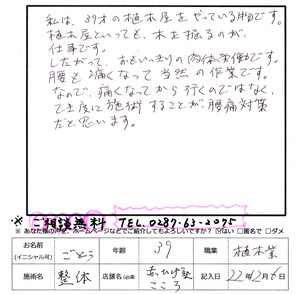 私は、39才の植木屋をやっている男です。
植木屋といっても、木を掘るのが
仕事です。
したがって、おもいっきりの肉体労働です。
腰を痛くなって当然の作業です。
なので、痛くなってから行くのではなく、
てき度に施術することが腰痛対策
だと思います。
※ご相談無料 TEL.0287-63-2075
※あなた様の声を、ホームページなどでご紹介してもよろしいですか? ☑はい □匿名で □ダメ
お名前(イニシャル可) ごとう 年齢 39 職業 植木業
施術名 整体 店舗名(必須) 赤ひげ塾こころ 記入日 22年2月6日